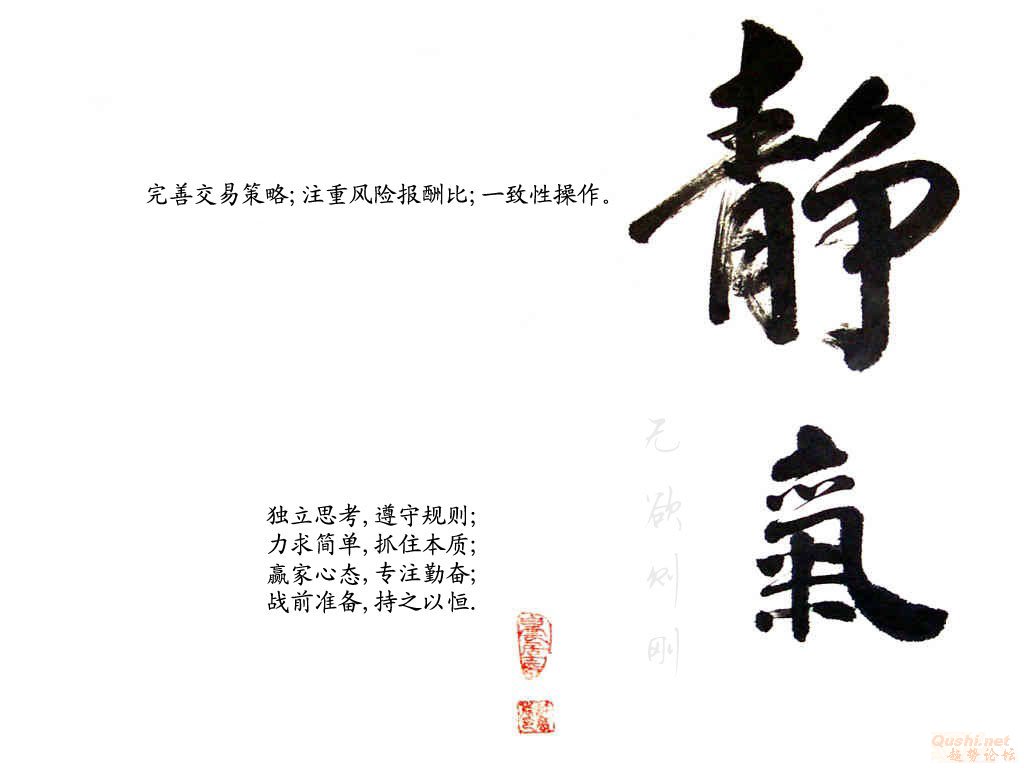 静氣
完善交易策略; 注重风险报酬比; 一致性操作。
无欲则刚
独立思考, 遵守规则;
力求简单, 抓住本质;
赢家心态, 专注勤奋;
战前准备, 持之以恒.
Qushi.net
趋势论坛